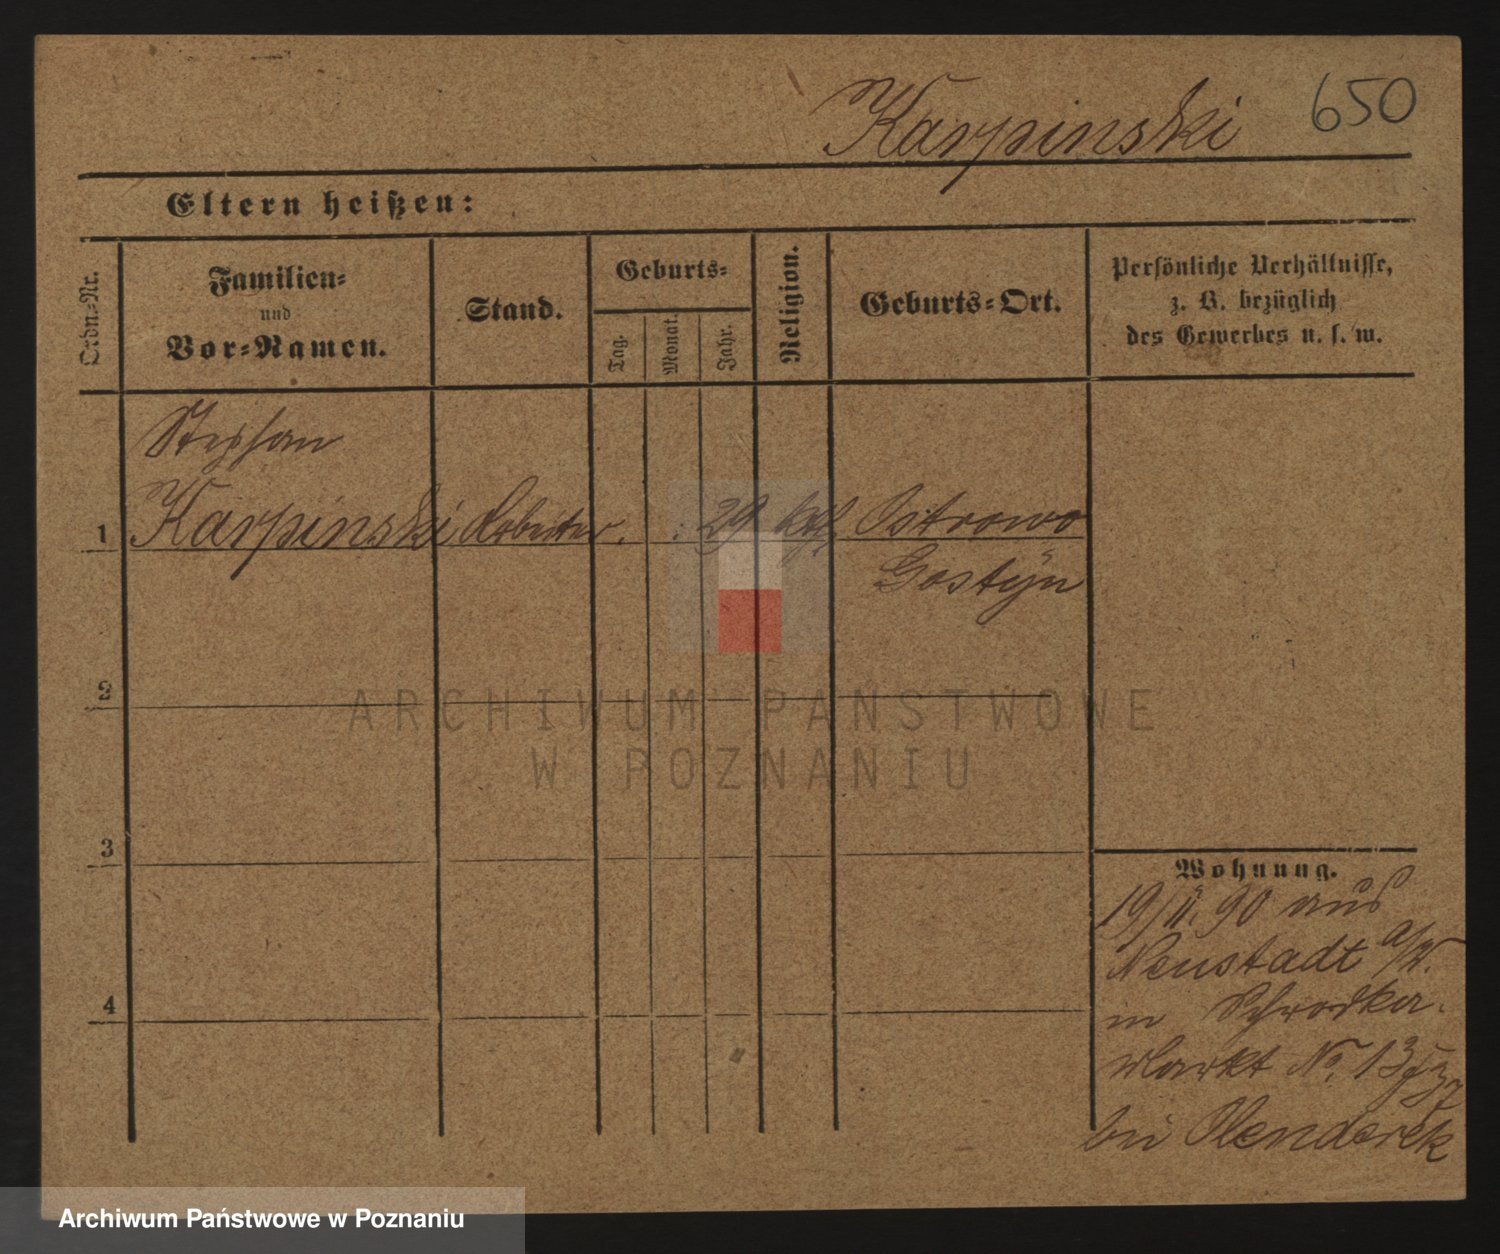 Karpinski 650
Eltern heißen:
Ordn.-Nr.
Familien-
und
Vor-Namen.
Stand.
Geburts-
Tag.
Monat.
Jahr.
Religion.
Geburts-Ort.
Persönliche Verhältnisse,
z. B. bezüglich
des Gewerbes u. s. w.
Stephan
1 Karpinski Arbeiter. 29 ktf. Ostrowo
Gostÿn
2
3
4
Wohnung.
19/II. 90 aus
Neustadt a/W.
in Schrodka-
Markt No. 13
bei Olenderek
ARCHIWUM PAŃSTWOWE
W POZNANIU
Archiwum Państwowe w Poznaniu